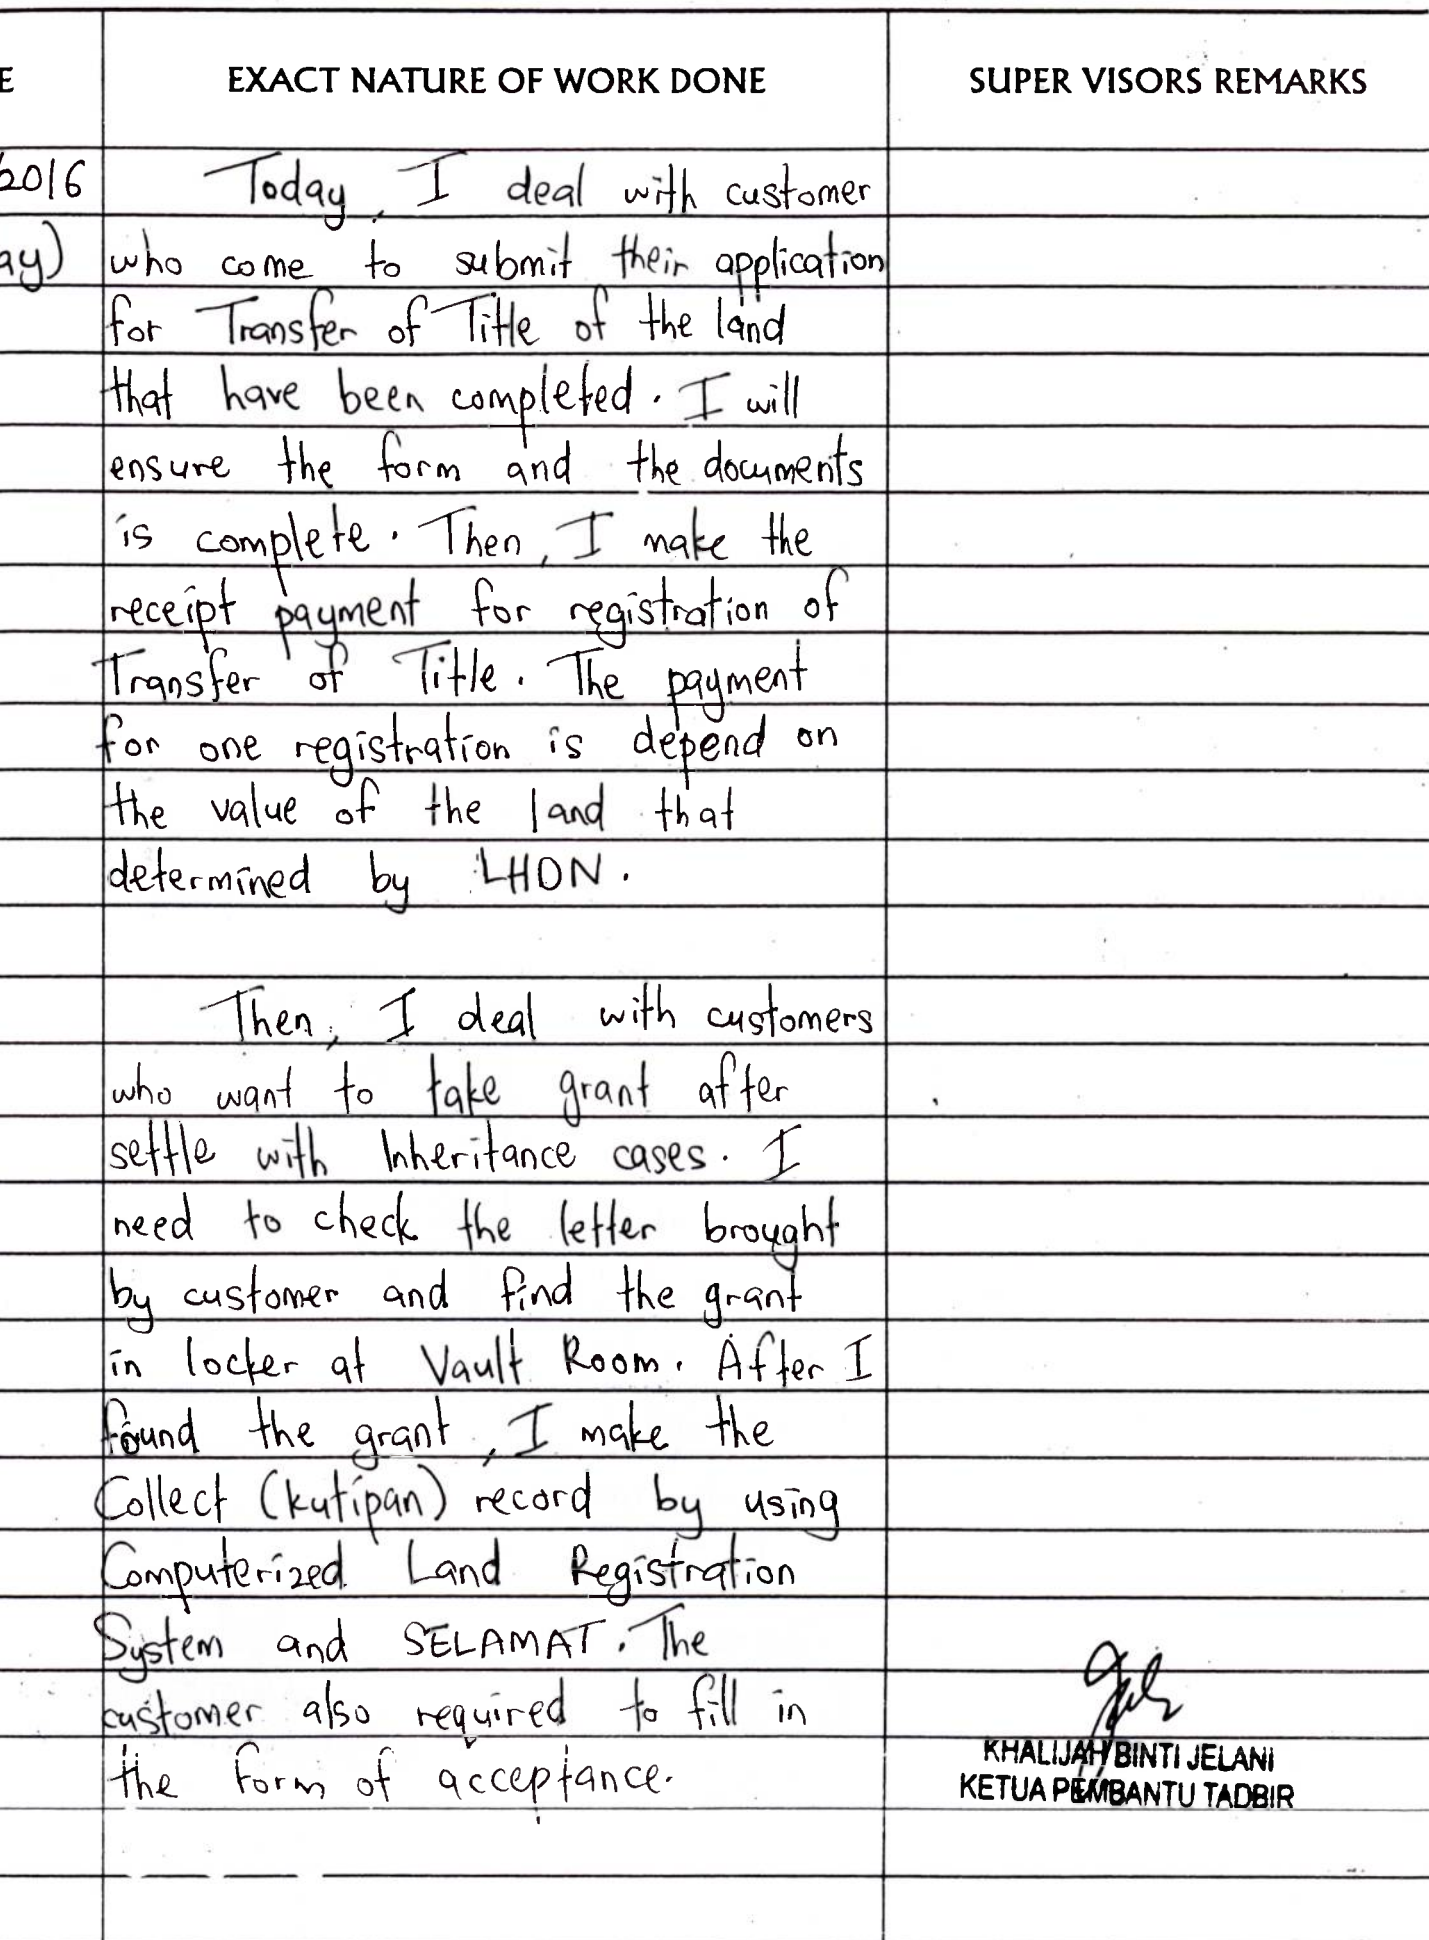 E EXACT NATURE OF WORK DONE SUPER VISORS REMARKS
2016 Today, I deal with customer
ay) who come to submit their application
for Transfer of Title of the land
that have been completed. I will
ensure the form and the documents
is complete. Then, I make the
receipt payment for registration of
Transfer of Title. The payment
for one registration is depend on
the value of the land that
determined by LHDN.
Then, I deal with customers
who want to take grant after
settle with Inheritance cases. I
need to check the letter brought
by customer and find the grant
in locker at Vault Room. After I
found the grant, I make the
Collect (kutipan) record by using
Computerized Land Registration
System and SELAMAT. The
customer also required to fill in
the form of acceptance.
KHALIJAH BINTI JELANI
KETUA PEMBANTU TADBIR